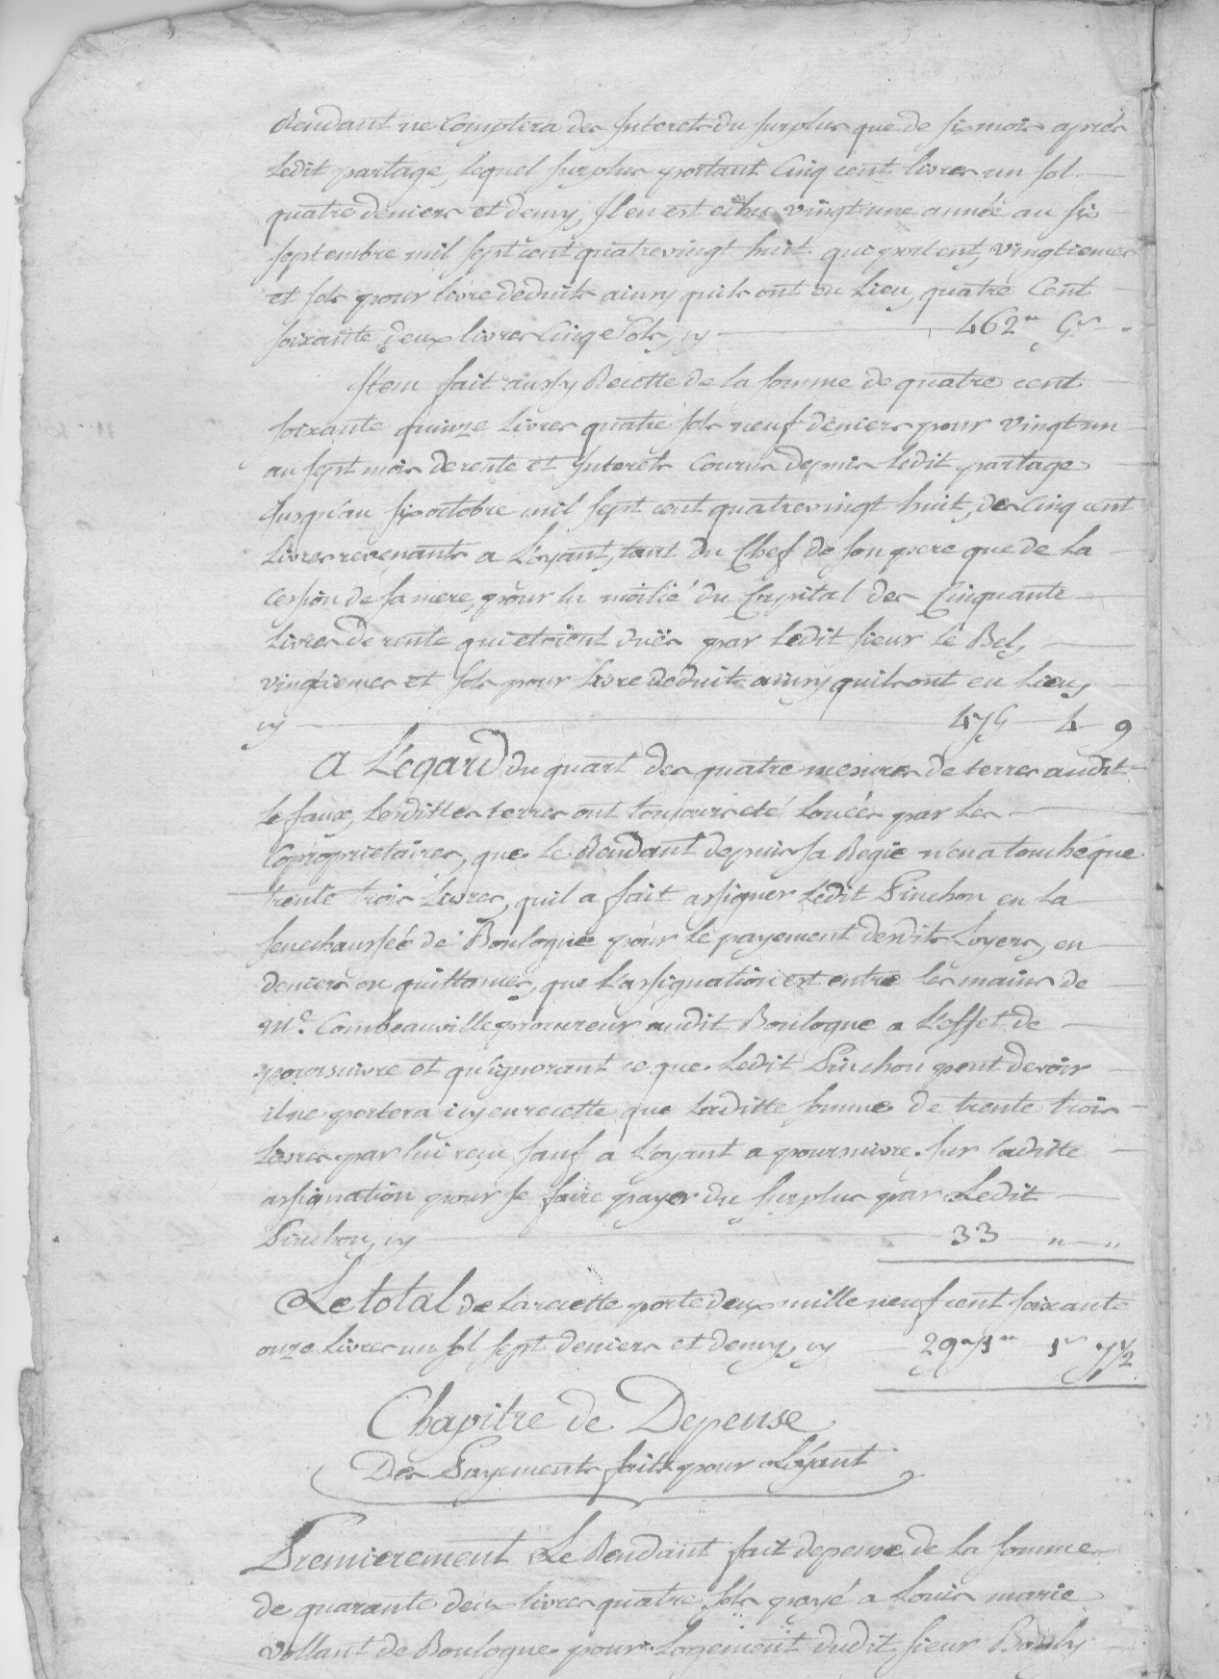 Rendant ne Comptera des Interets du surplus que de six mois après
Ledit partage, lequel surplus portant Cinq cent livres un sol
quatre deniers et demy, Il en est echu vingt une année au six
septembre mil sept cent quatrevingt huit qui portent, vingtiemes
et sols pour livre deduits ainsy quils ont eu Lieu, quatre Cent
soixante deux livres Cinq Sols, cy 462ᵗᵗ 5ˢ "
Item fait aussy Recette de la somme de quatre cent
soixante quinze Livres quatre sols neuf deniers pour vingt un
an sept mois de rente et Interets Courus depuis Ledit partage
Jusqu'au six octobre mil sept cent quatrevingt huit, des Cinq cent
Livres revenants a L'oyant, tant du Chef de son pere que de La
Cession de sa mere, pour la moitié du Capital des Cinquante
Livres de rente qui etoient duës par Ledit sieur Le Bel,
vingtiemes et sols pour Livre deduits ainsy quils ont eu Lieu,
cy 475 4 9
A L'egard du quart des quatre mesures de terres audit
Le faux, Lesdittes terres ont toujours eté Louées par Les
Coproprietaires, que Le Rendant depuis sa Regie n'en a touché que
trente trois Livres, quil a fait assigner Ledit Pinchon en La
senechaussée de Boulogne pour Le payement desdits Loyers, en
deniers ou quittances, que L'assignation est entre les mains de
Mᵉ. Combeauville procureur audit Boulogne a L'effet de
poursuivre et qu'ignorant ce que Ledit Pinchon peut devoir
il ne portera icy en recette que Laditte somme de trente trois
Livres par lui reçue sauf a L'oyant a poursuivre sur laditte
assignation pour se faire payer du surplus par Ledit
Pinchon, cy 33 " "
Le total de La recette porte deux mille neuf cent soixante
onze Livres un sol sept deniers et demy, cy 2971ᵗᵗ 1ˢ 7½
Chapitre de Depense
Des Payements faits pour L'oyant
Premierement Le Rendant fait depense de la somme
de quarante deux livres quatre sols payé a Louis marie
vollant de Boulogne pour Logement dudit sieur